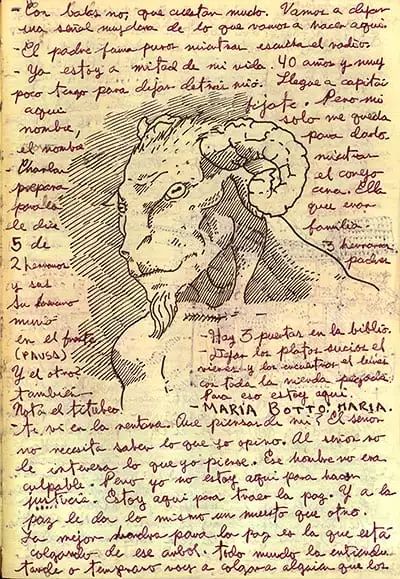 - Con balas no, que cuestan mucho. Vamos a dejar
una señal muy clara de lo que vamos a hacer aquí.
- El padre fuma puros mientras escucha el radio.
- Ya estoy a mitad de mi vida 40 años y muy
poco tengo para dejar detrás mío. Llegue a capitán
aquí fijate. Pero mi
nombre, solo me queda
el nombre para darlo
- Charlan mientras
prepara el conejo
para la cena. Ella
le dice que eran
5 de familia
2 hermanos 3 hermanas
y sus padres
Su hermano
murió
en el frente - Hay 3 puertas en la biblio.
(PAUSA) - Dejar los platos sucios el
Y el otro? viernes y los encuentras el lunes
también con toda la mierda pegada.
Nota el titubeo. Para eso estoy aquí.
- MARÍA BOTTO, MARIA.
- te vi en la ventana. Que piensas de mi? El señor
no necesita saber lo que yo opino. Al señor no
le interesa lo que yo piense. Ese hombre no era
culpable. Pero yo no estoy aquí para hacer
justicia. Estoy aquí para traer la paz. Y a la
paz le da lo mismo un muerto que otro.
La mejor para la paz es la que está
colgando de ese arbol. todo mundo la entiende
tarde o temprano vas a colgar a alguien que los